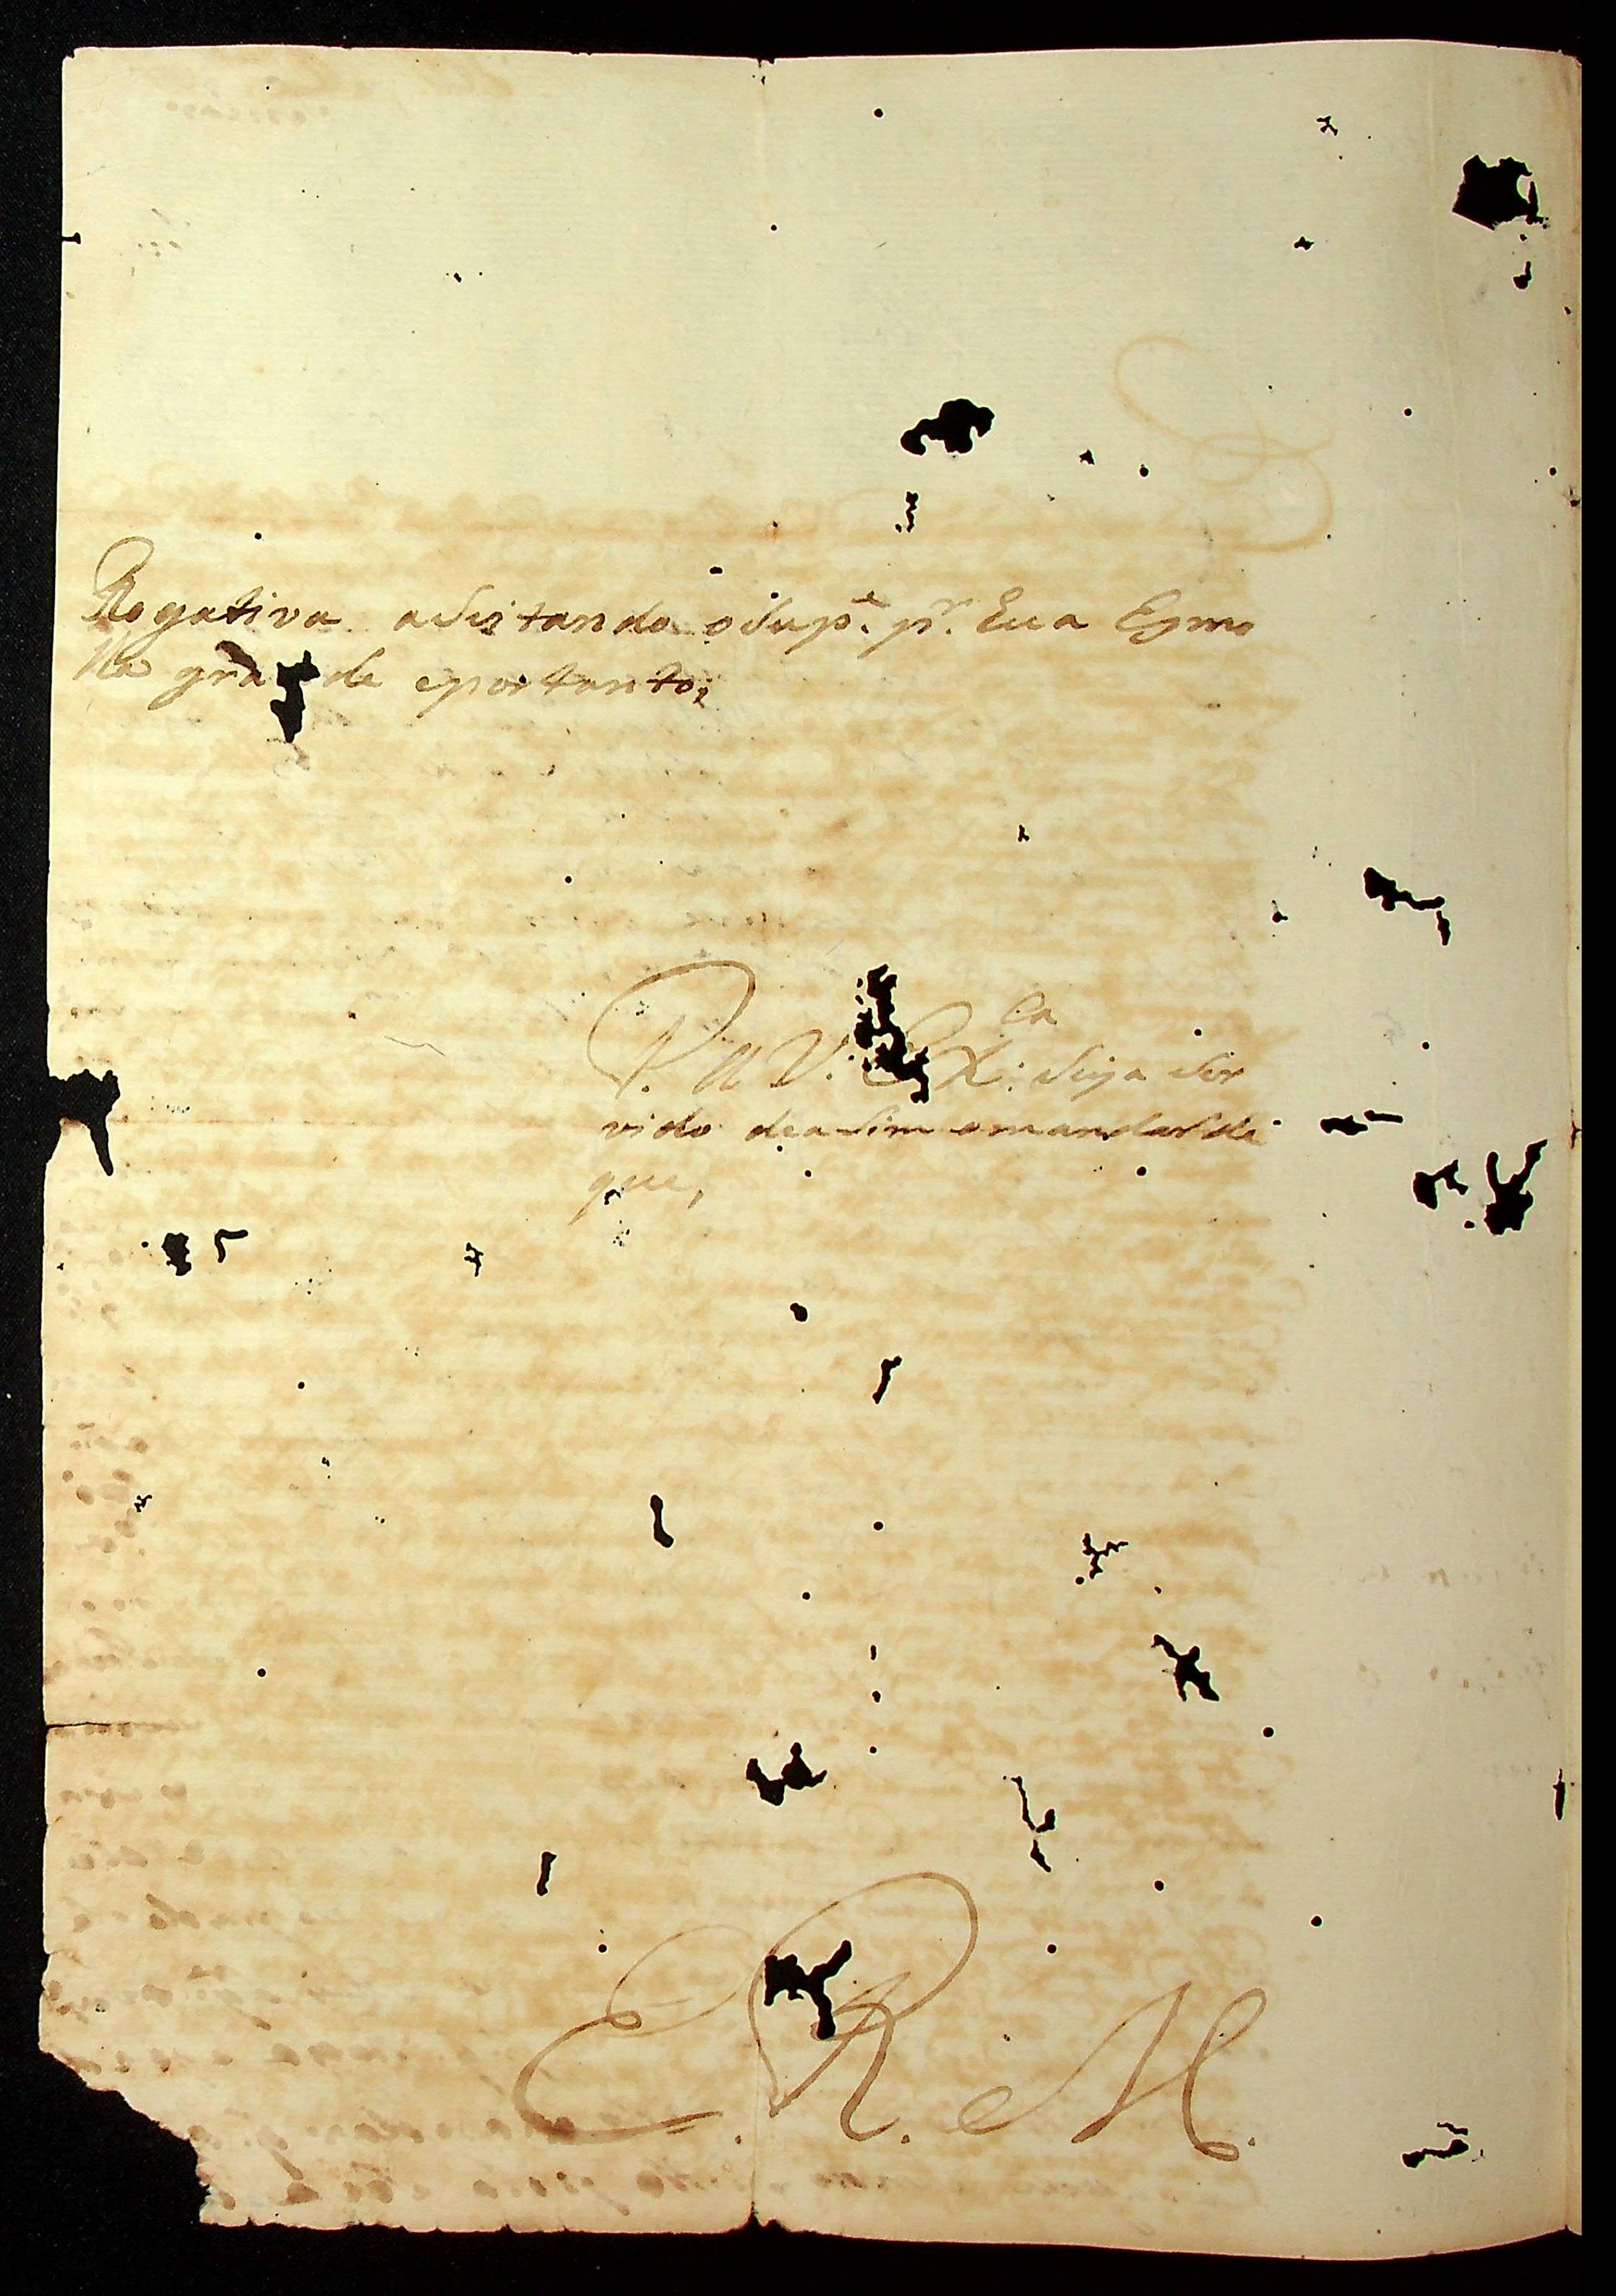 Rogativa aseitando o Sup.e p.r Sua Esmo
la gra de eportanto,
P. a V. EX.ca Seja Ser
vido de asim omandar de
que,
E. R. M.